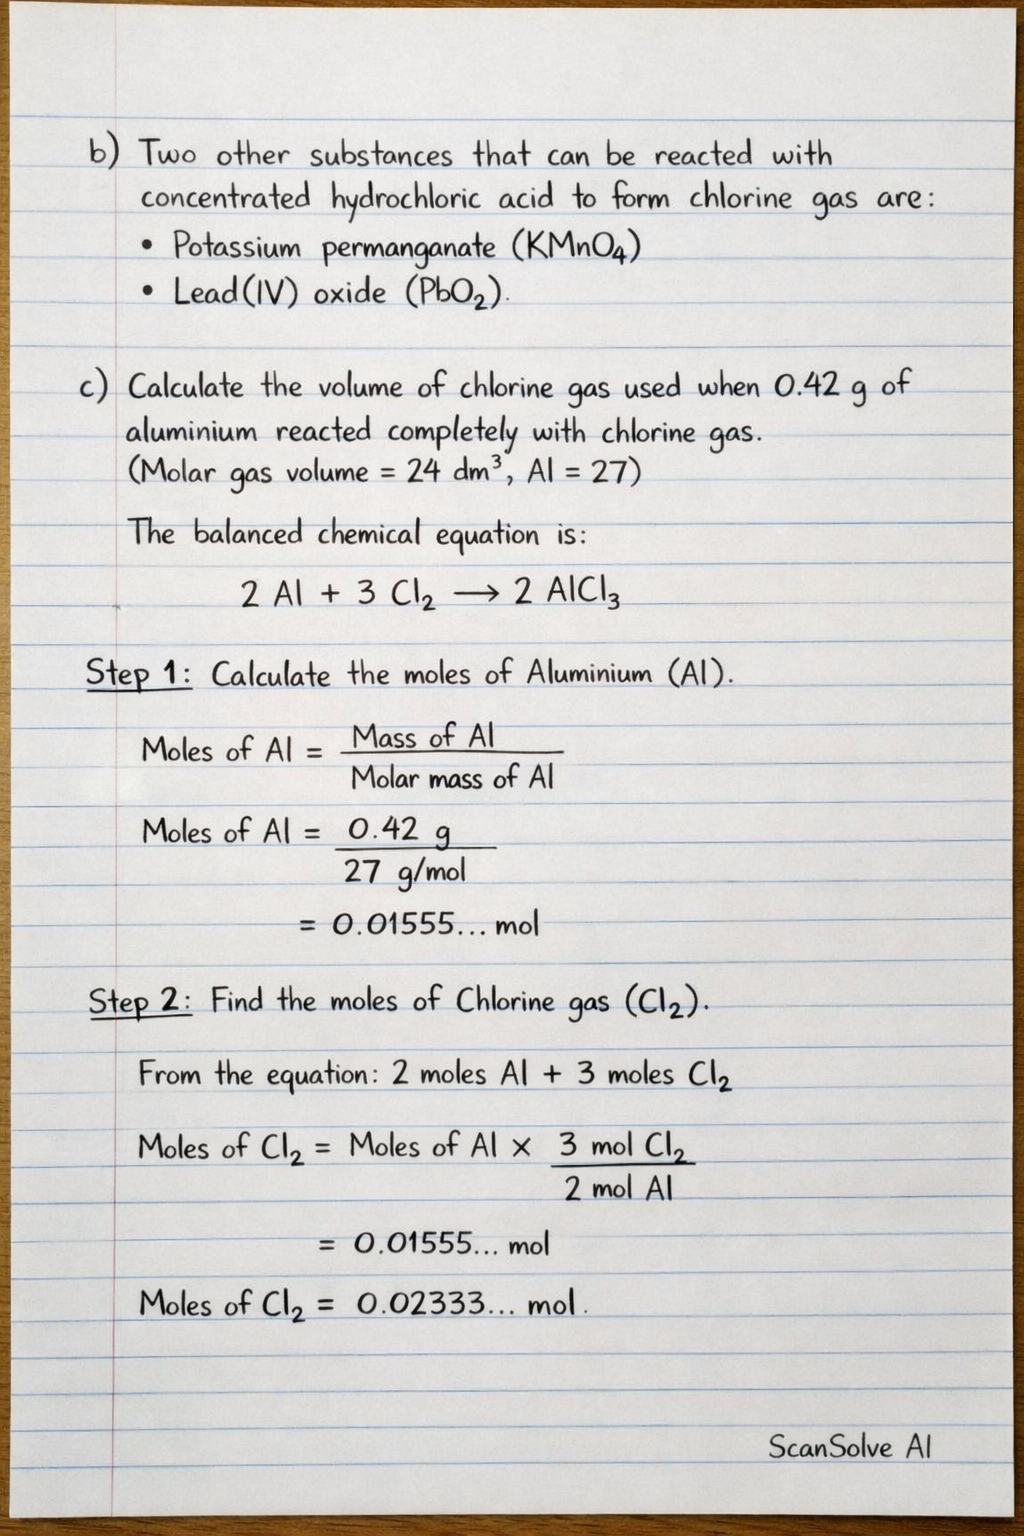 b) Two other substances that can be reacted with
concentrated hydrochloric acid to form chlorine gas are:
• Potassium permanganate (KMnO₄)
• Lead(IV) oxide (PbO₂).
c) Calculate the volume of chlorine gas used when 0.42 g of
aluminium reacted completely with chlorine gas.
(Molar gas volume = 24 dm³, Al = 27)
The balanced chemical equation is:
2 Al + 3 Cl₂ → 2 AlCl₃
Step 1: Calculate the moles of Aluminium (Al).
Moles of Al = Mass of Al
Molar mass of Al
Moles of Al = 0.42 g
27 g/mol
= 0.01555... mol
Step 2: Find the moles of Chlorine gas (Cl₂).
From the equation: 2 moles Al + 3 moles Cl₂
Moles of Cl₂ = Moles of Al × 3 mol Cl₂
2 mol Al
= 0.01555... mol
Moles of Cl₂ = 0.02333... mol.
ScanSolve AI